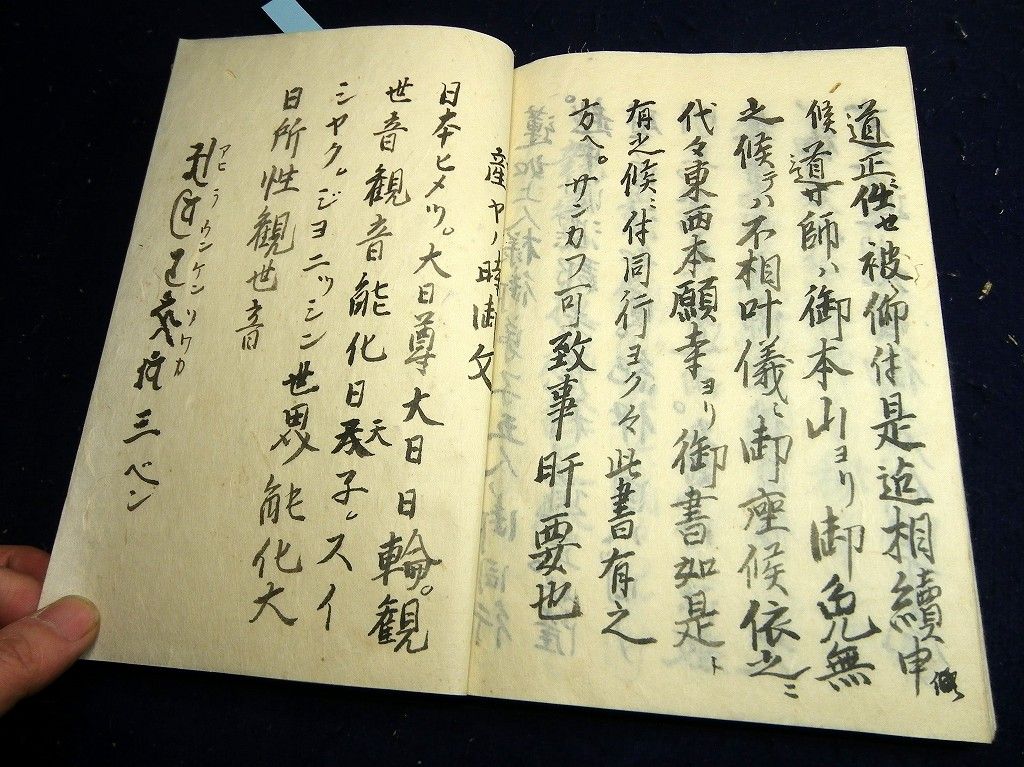 道正ニ任セ被仰付是迠相續申候
候道ノ師ハ御本山ヨリ御免無
之候テハ不相叶儀ニ御座候依之ニ
代々東西本願寺ヨリ御書如是ト
有之候ヘ付同行ヨク々此書有之
方ヘ。サンカフ可致事肝要也
産ヤノ時御文
日本ヒメツ。大日尊大日日輪。観
世音観音能化日天子。スイ
シヤク。ジヨニツシン世界能化大
日所性観世音
アヒラウンケンソワカ
三ベン